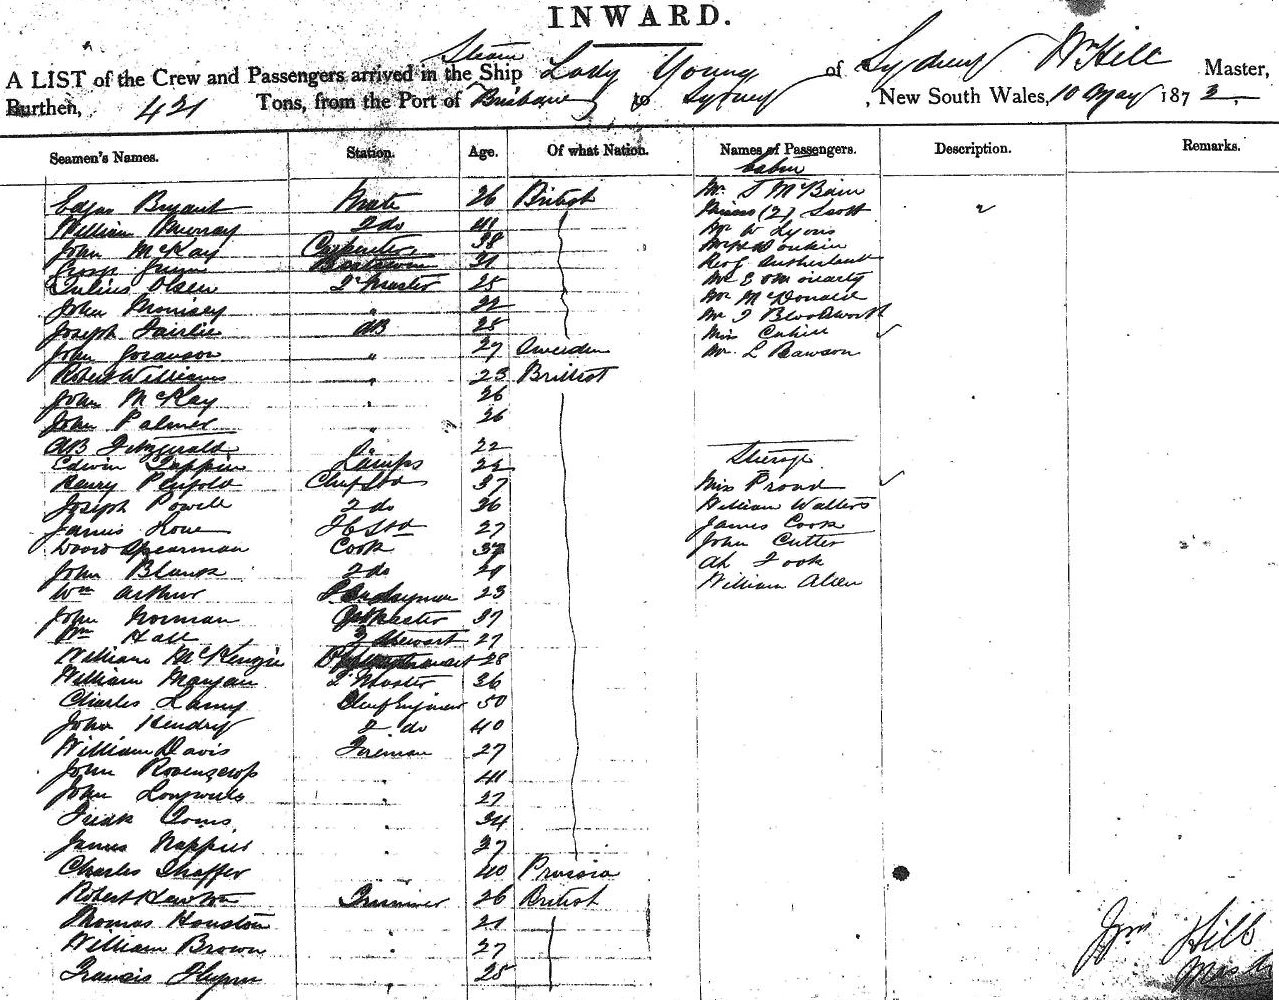 INWARD.
Steam
A LIST of the Crew and Passengers arrived in the Ship Lady Young of Sydney Wm Hill Master,
Burthen, 421 Tons, from the Port of Brisbane to Sydney, New South Wales, 10 May 1873.
Seamen's Names. Station. Age. Of what Nation. Names of Passengers. Description. Remarks.
Cabin
Edgar Bryant Mate 26 British Mr. McBain
William Murray 2 do 41 (2) Scott
John McKay Carpenter 38 Mr W Lyons
Green Boatswain 31
Julius Olsen 25 Sutherland
John Morrisey " 22 Mr E Moriarty
Joseph Fairlie AB 25 Mr McDonald
John Goranson " 27 Sweden Mr J Bloodworth
Robert Williams " 23 British Miss Cahill
John McKay " 26 Mr. L Rawson
John Palmer " 26
AB Fitzgerald " 22
Edwin Lamps 22 Steerage
Henry Penfold Chief Std 37 Miss Proud
Joseph Powell 2 do 36 William Walters
James Lowe 27 James Cook
David Spearman Cook John Cutter
John Blank 2 do Ah Fook
Wm Arthur 23 William Allen
John Norman 37
Wm Hall 27
William McKenzie 28
William 26
Charles Lamy Chief Engineer 50
John Hendry 2 do 40
William Davis Fireman 27
John " 41
John " 27
Fredk " 34
James Nappier " 27
Charles Shaffer " 40 Prussia
Robert Hewton Trimmer 26 British
Thomas Houston 21
William Brown " 27
Francis Flynn " 25
Wm Hill
Master